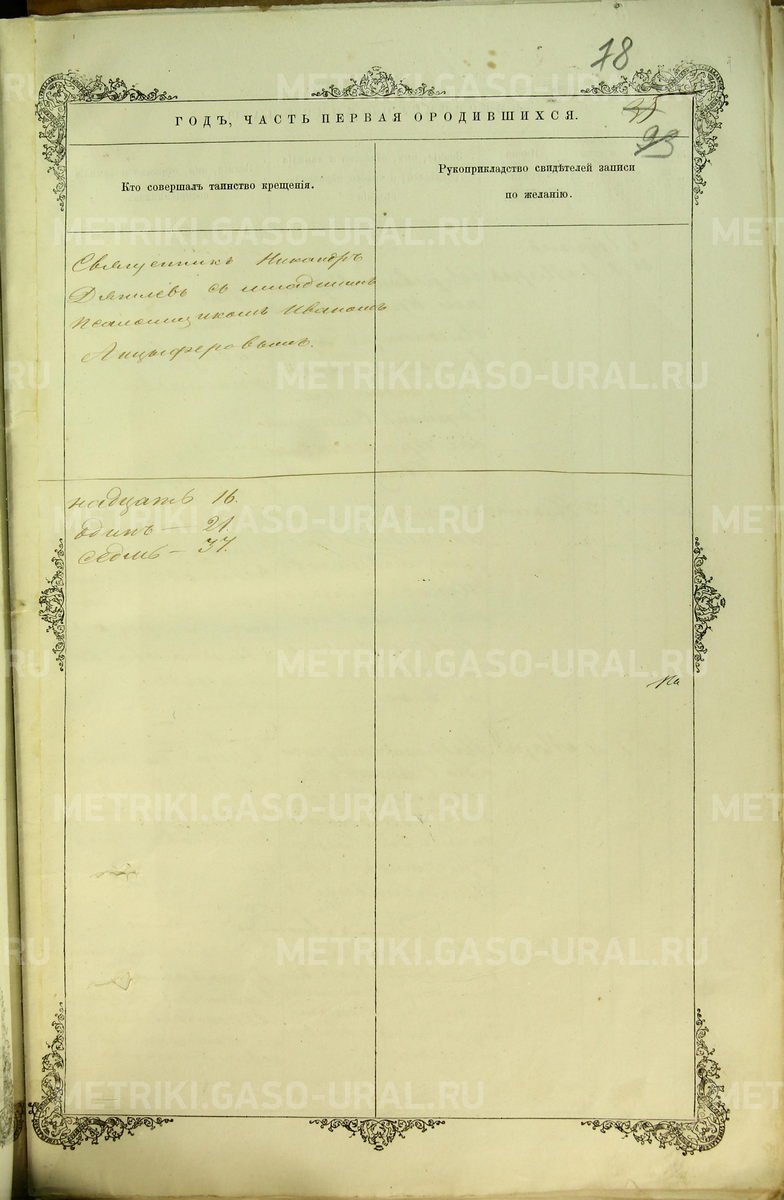 18
35
93
ГОДЪ, ЧАСТЬ ПЕРВАЯ О РОДИВШИХСЯ.
Кто совершалъ таинство крещенія.
Рукоприкладство свидѣтелей записи
по желанію.
Священникъ Никандръ
съ младшимъ
Псаломщикомъ Иваномъ
Анцыферовымъ.
надцать 16.
одинъ — 21.
седмь — 37.
METRIKI.GASO-URAL.RU